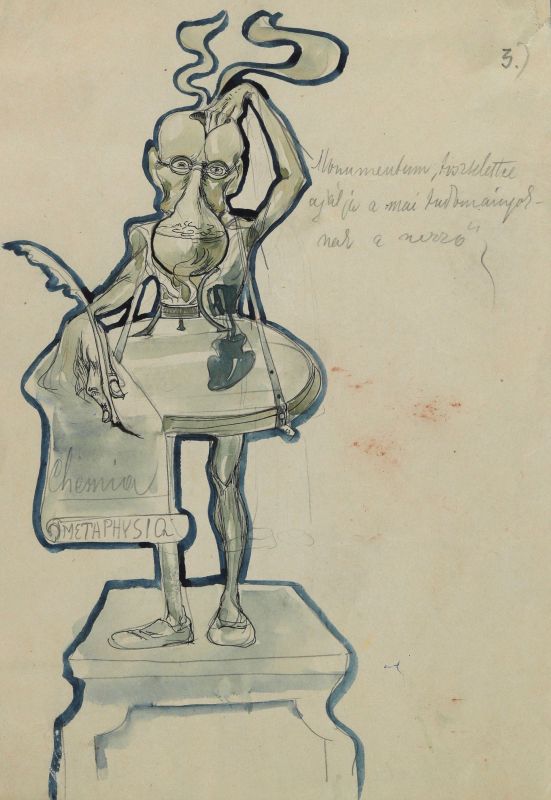 3.)
Monumentum, tisztelettel
ajálja a mai tudományok-
nak a
Chemia
METAPHYSICA